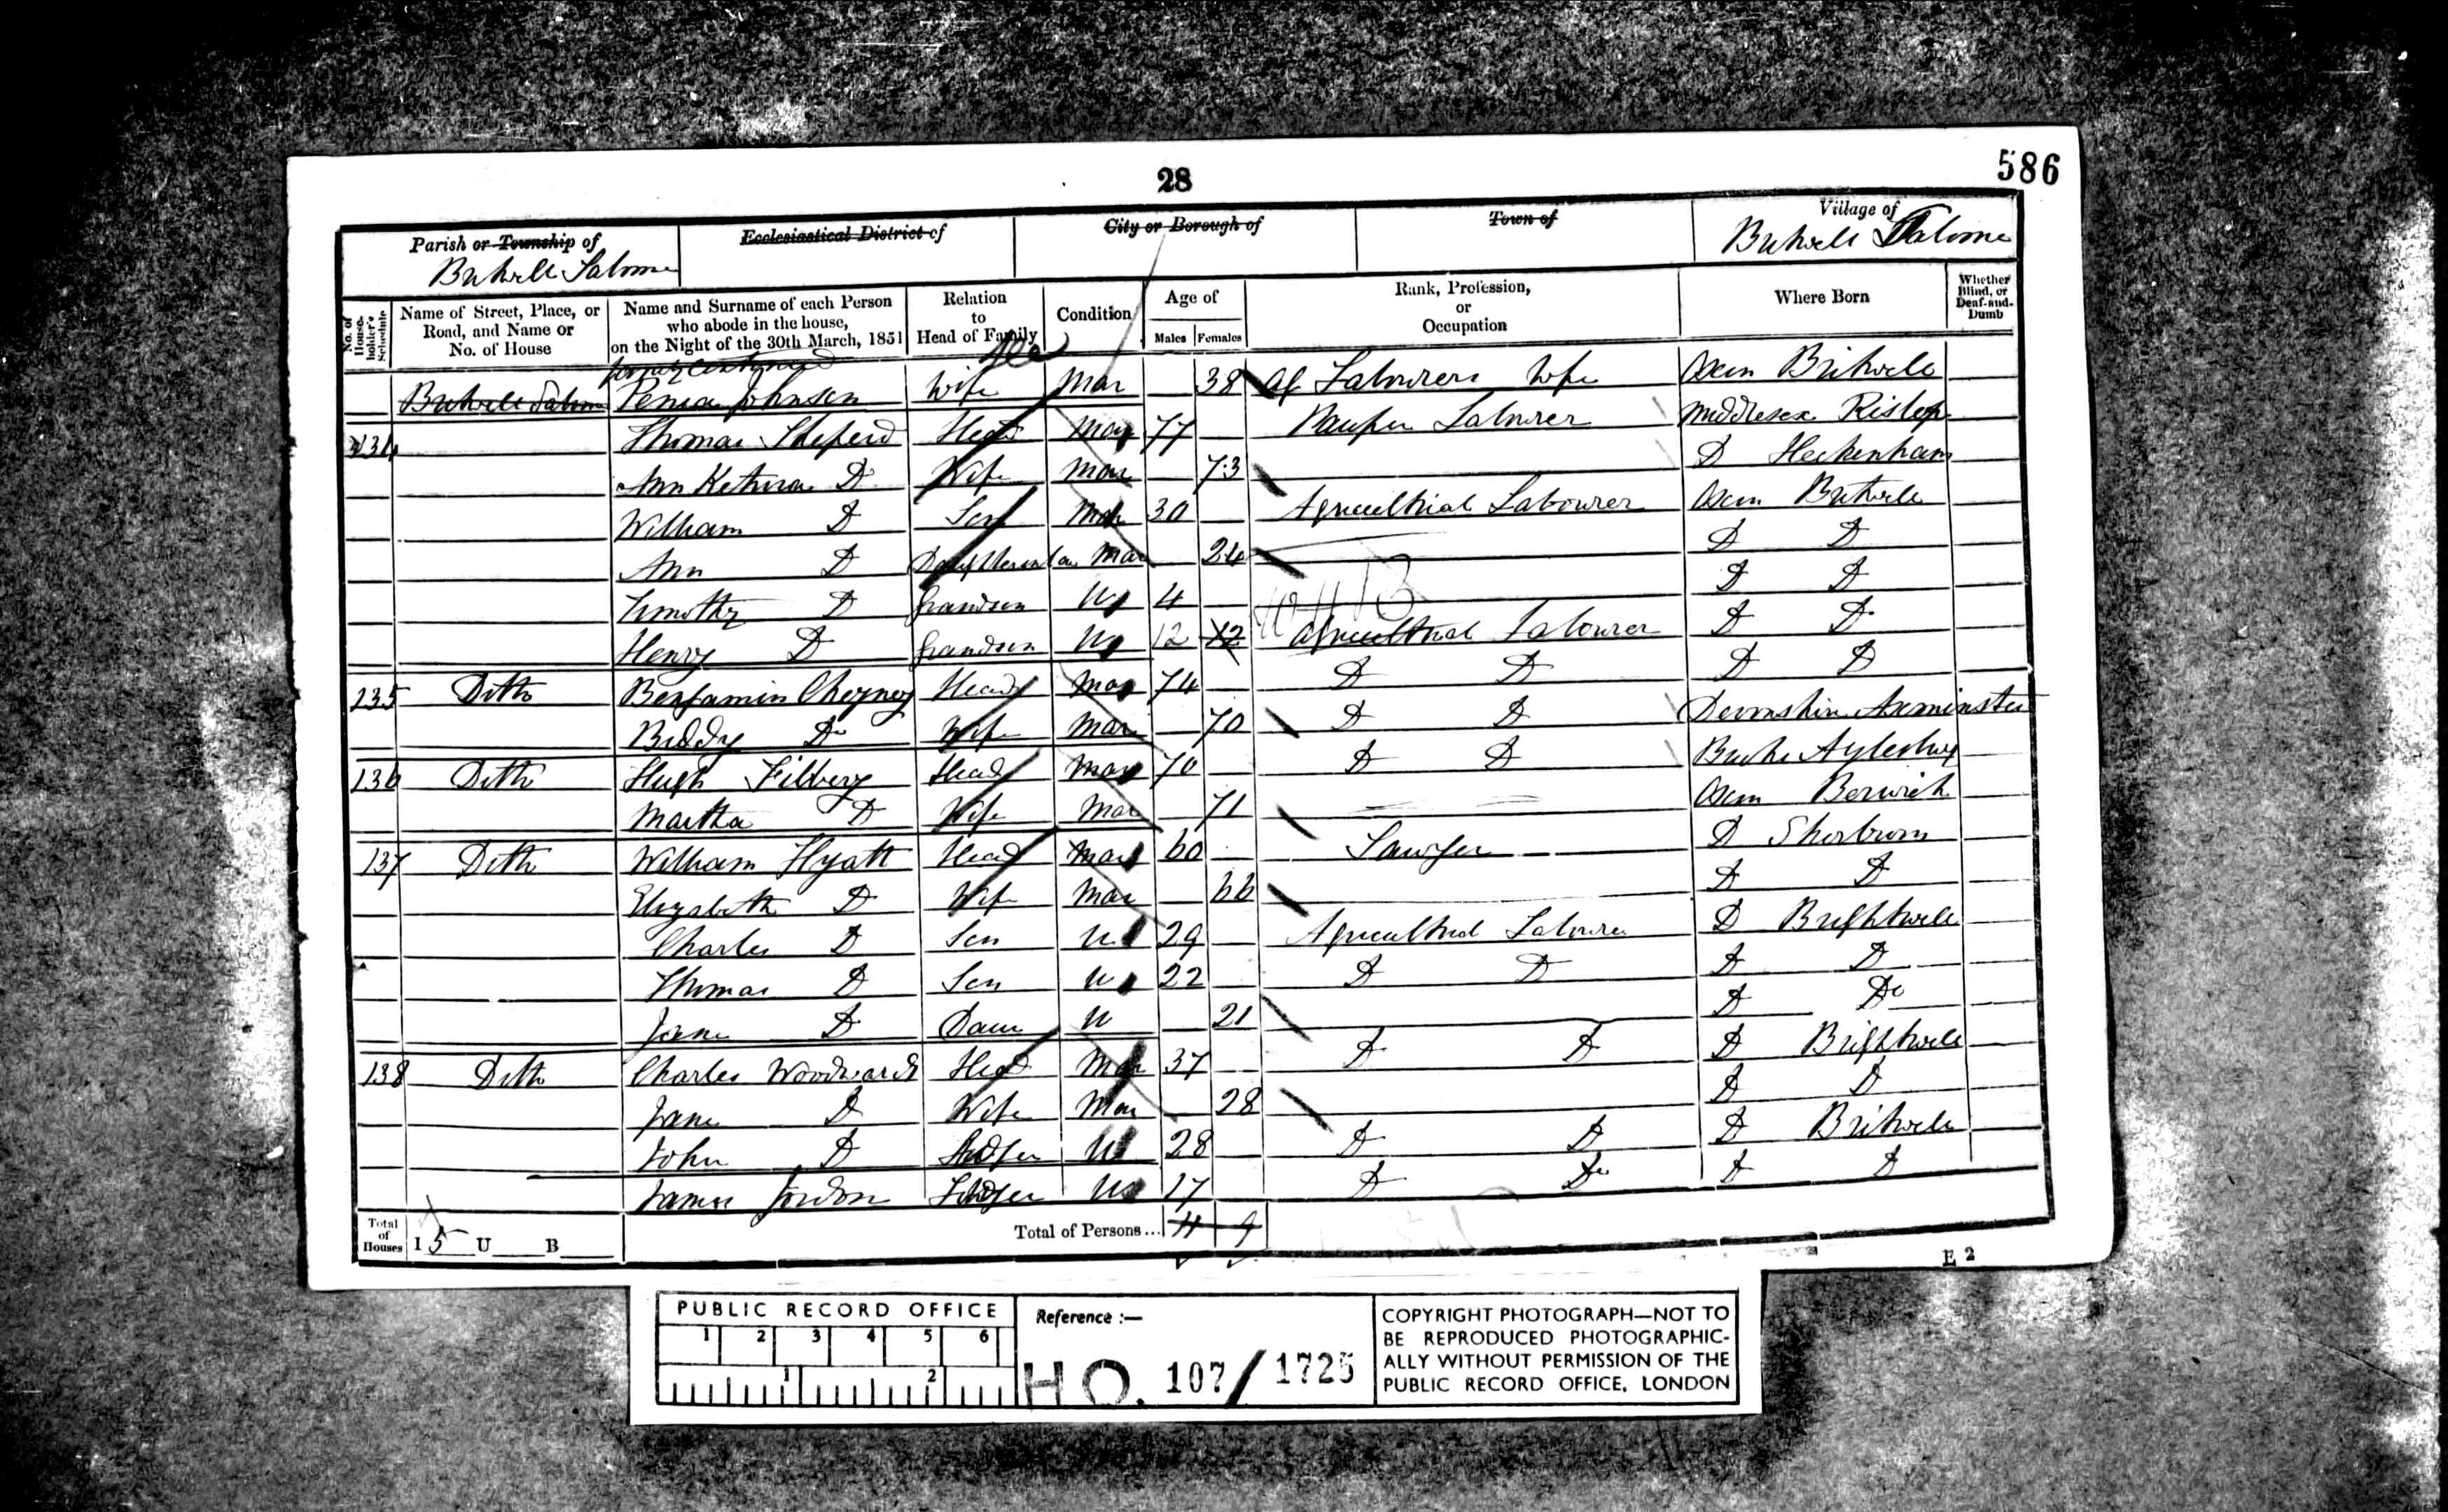 28
586
Parish or Township of
Britwell Salome
Ecclesiastical District of
City or Borough of
Town of
Village of
Britwell Salome
No. of House-holder's Schedule
Name of Street, Place, or Road, and Name or No. of House
Name and Surname of each Person who abode in the house, on the Night of the 30th March, 1851
Relation to Head of Family
Condition
Age of
Males Females
Rank, Profession, or Occupation
Where Born
Whether Blind, or Deaf-and-Dumb
Britwell Salome Johnson Wife Mar 38 Ag Labourers Wife Oxon Britwell
134 Thomas Sheperd Head Mar 77 Pauper Labourer Middlesex Rislep
Ann Keturа D Wife Mar 73 D Heckenham
William D Son Mar 30 Agricultrial Labourer Oxon Britwell
Ann D Daughterinlaw Mar 24 D D
Timothy D Grandson U 4 D D
Henry D Grandson U 12 12 Agricultural Labourer D D
135 Ditto Benjamin Cheyney Head Mar 74 D D D D
Biddy Do Wife Mar 70 D D Devonshire Axminster
136 Ditto Hugh Filbery Head Mar 70 D D Bucks Aylesbury
Martha D Wife Mar 71 Oxon Berwick
137 Ditto William Hyatt Head Mar 60 Sawyer D Sherburn
Elizabeth D Wife Mar 66 D D
Charles D Son U 29 Agricultrul Labourer D Brightwell
Thomas D Son U 22 D D D D
Jane D Daur U 21 D Do
138 Ditto Charles Woodward Head Mar 37 D D D Brightwell
Jane D Wife Mar 28 D D
John D Lodger U 28 D D D Britwell
James Jordon Lodger U 17 D Do D D
Total of Houses I 5 U B
Total of Persons... 11 9
E 2
PUBLIC RECORD OFFICE
1 2 3 4 5 6
1 2
Reference :—
H O. 107 / 1725
COPYRIGHT PHOTOGRAPH—NOT TO
BE REPRODUCED PHOTOGRAPHIC-
ALLY WITHOUT PERMISSION OF THE
PUBLIC RECORD OFFICE, LONDON